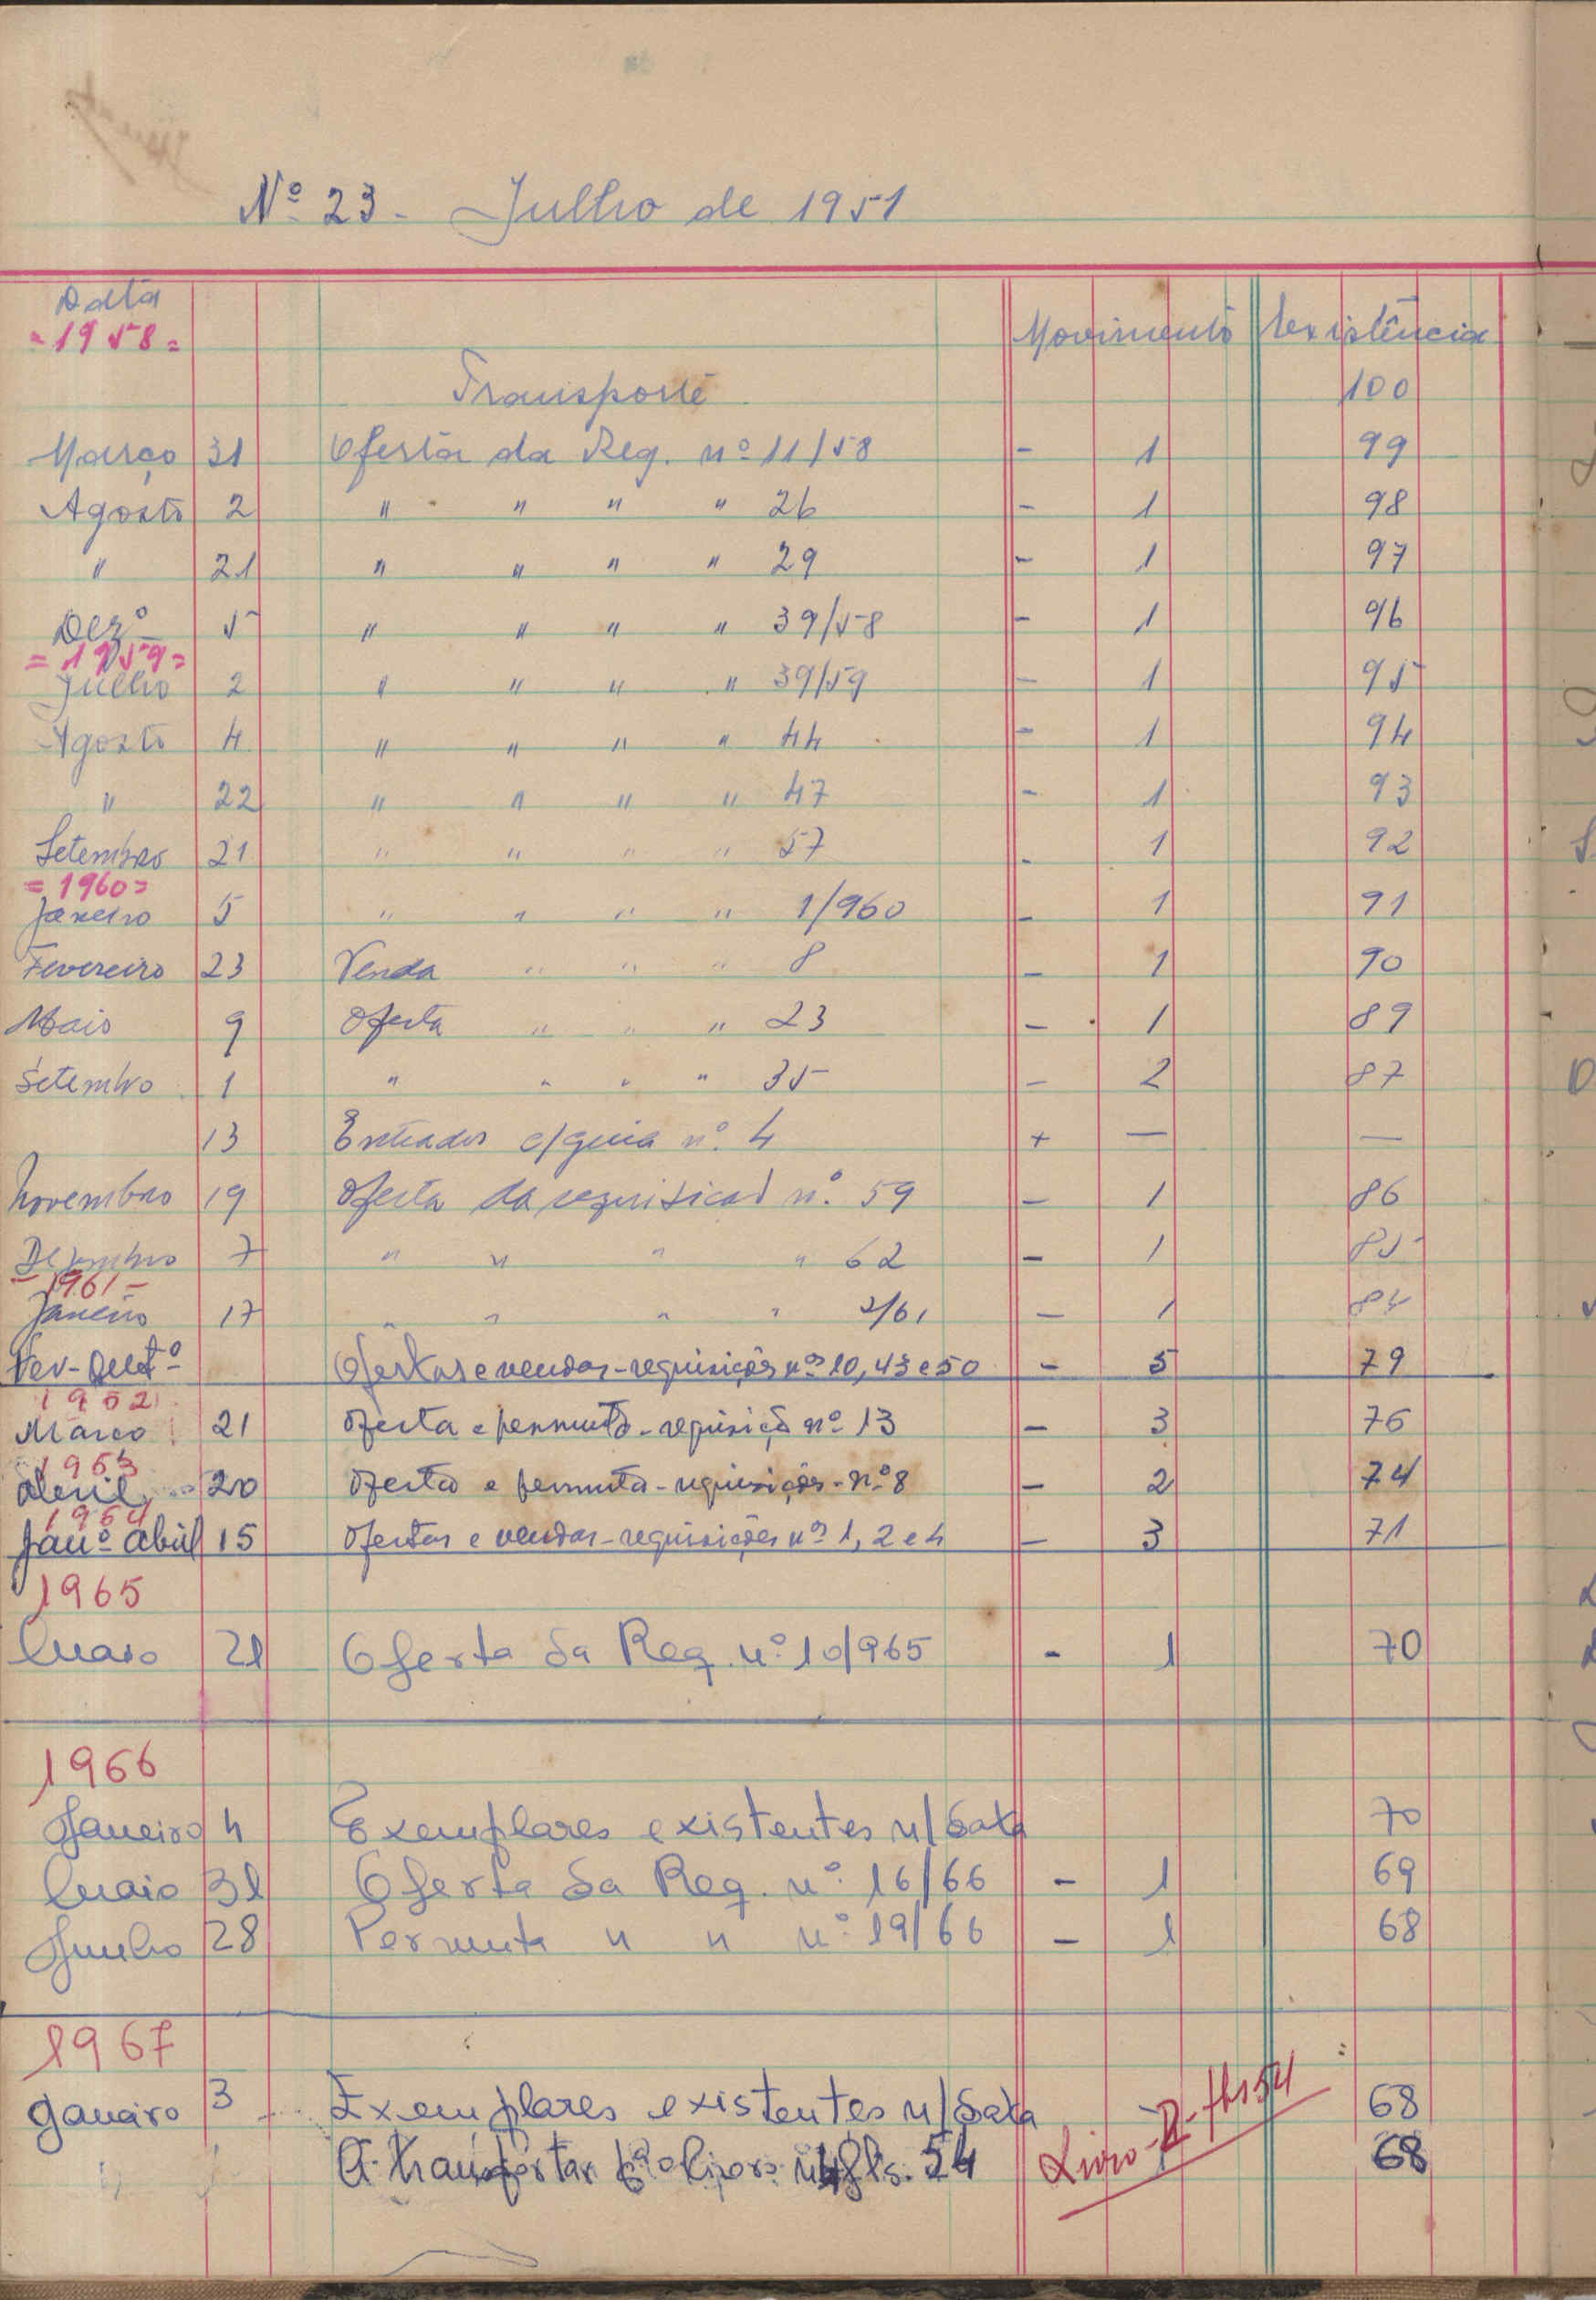 Nº 23 - Julho de 1951
Data Movimento Existência
=1958=
Transporte 100
Março 31 Oferta da Req. nº 11/58 - 1 99
Agosto 2 " " " " 26 - 1 98
" 21 " " " " 29 - 1 97
Dezº 5 " " " " 39/58 - 1 96
=1959=
Julho 2 " " " " 39/59 - 1 95
Agosto 4 " " " " 44 - 1 94
" 22 " " " " 47 - 1 93
Setembro 21 " " " " 57 - 1 92
=1960=
Janeiro 5 " " " " 1/960 - 1 91
Fevereiro 23 Venda " " " 8 - 1 90
Maio 9 Oferta " " " 23 - 1 89
Setembro 1 " " " " 35 - 2 87
13 Entrados c/guia nº 4 + — —
Novembro 19 Oferta da requisicad nº 59 - 1 86
Dezembro 7 " " " " 62 - 1 85
-1961-
Janeiro 17 " " " " 2/61 - 1 84
Fev-Outº Ofertas e vendas-requisições nºs 10, 43 e 50 - 5 79
1962
Março 21 Oferta e permuta-requisição nº 13 - 3 76
1963
Abril 20 Oferta e permuta-requisições-nº 8 - 2 74
1964
Janº abril 15 Ofertas e vendas-requisições nºs 1, 2 e 4 - 3 71
1965
Maio 21 Oferta da Req. nº 10/965 - 1 70
1966
Janeiro 4 Exemplares existentes n/data 70
Maio 31 Oferta da Req. nº 16/66 - 1 69
Junho 28 Permuta " " nº 19/66 - 1 68
1967
Janeiro 3 Exemplares existentes n/data 68
A transportar livro fls. 54 68
Livro-II-fls 54